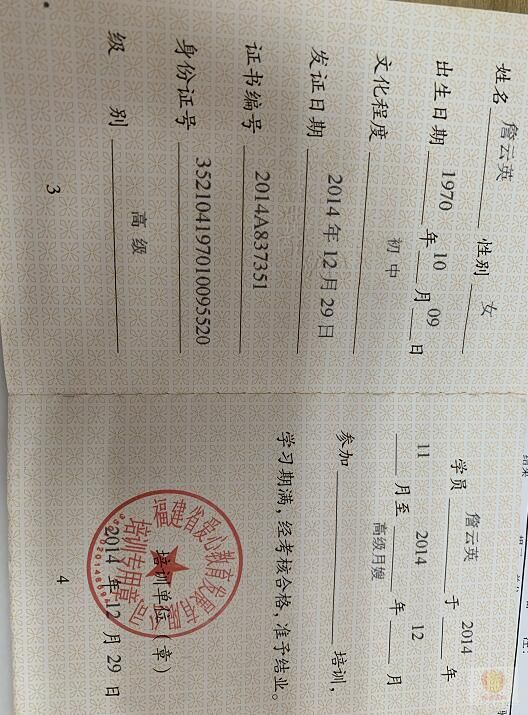 姓名 詹云英 性别 女
出生日期 1970 年 10 月 09 日
文化程度 初中
发证日期 2014 年 12 月 29 日
证书编号 2014A837351
身份证号 352104197010095520
级 别 高级
3
学员 詹云英 于 2014 年
11 月至 2014 年 12 月
参加 高级月嫂 培训,
学习期满,经考核合格,准予结业。
培训单位(章)
2014 年 12 月 29 日
福建省爱心教育发展
培训专用章
4